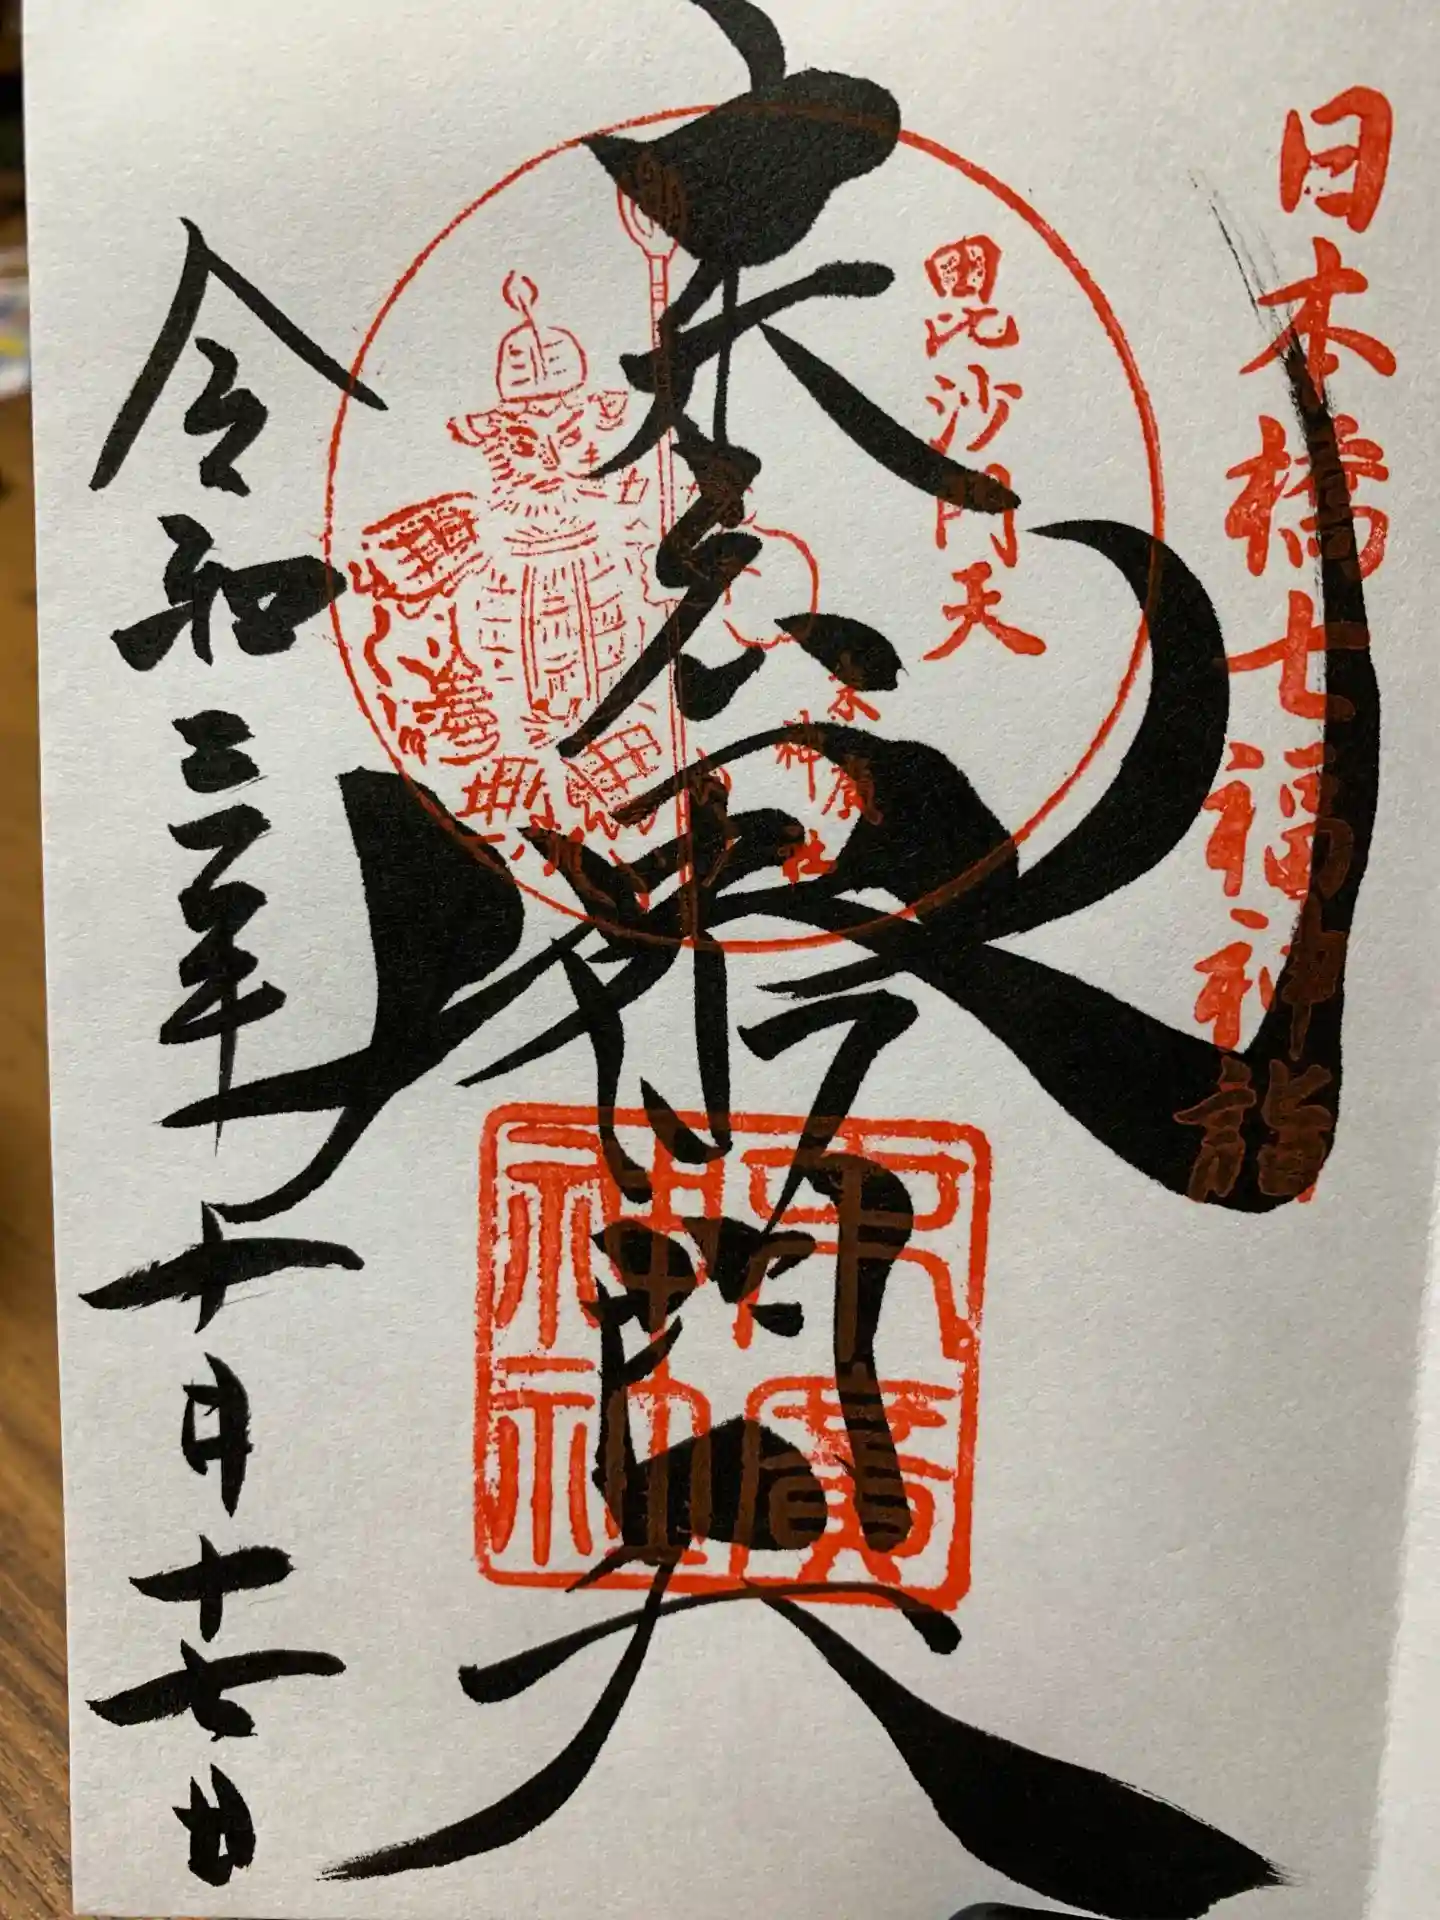 日本橋七福神詣
毘沙門天
末廣神社
末廣神社
毘沙門天
末廣神社
令和三年十月十七日